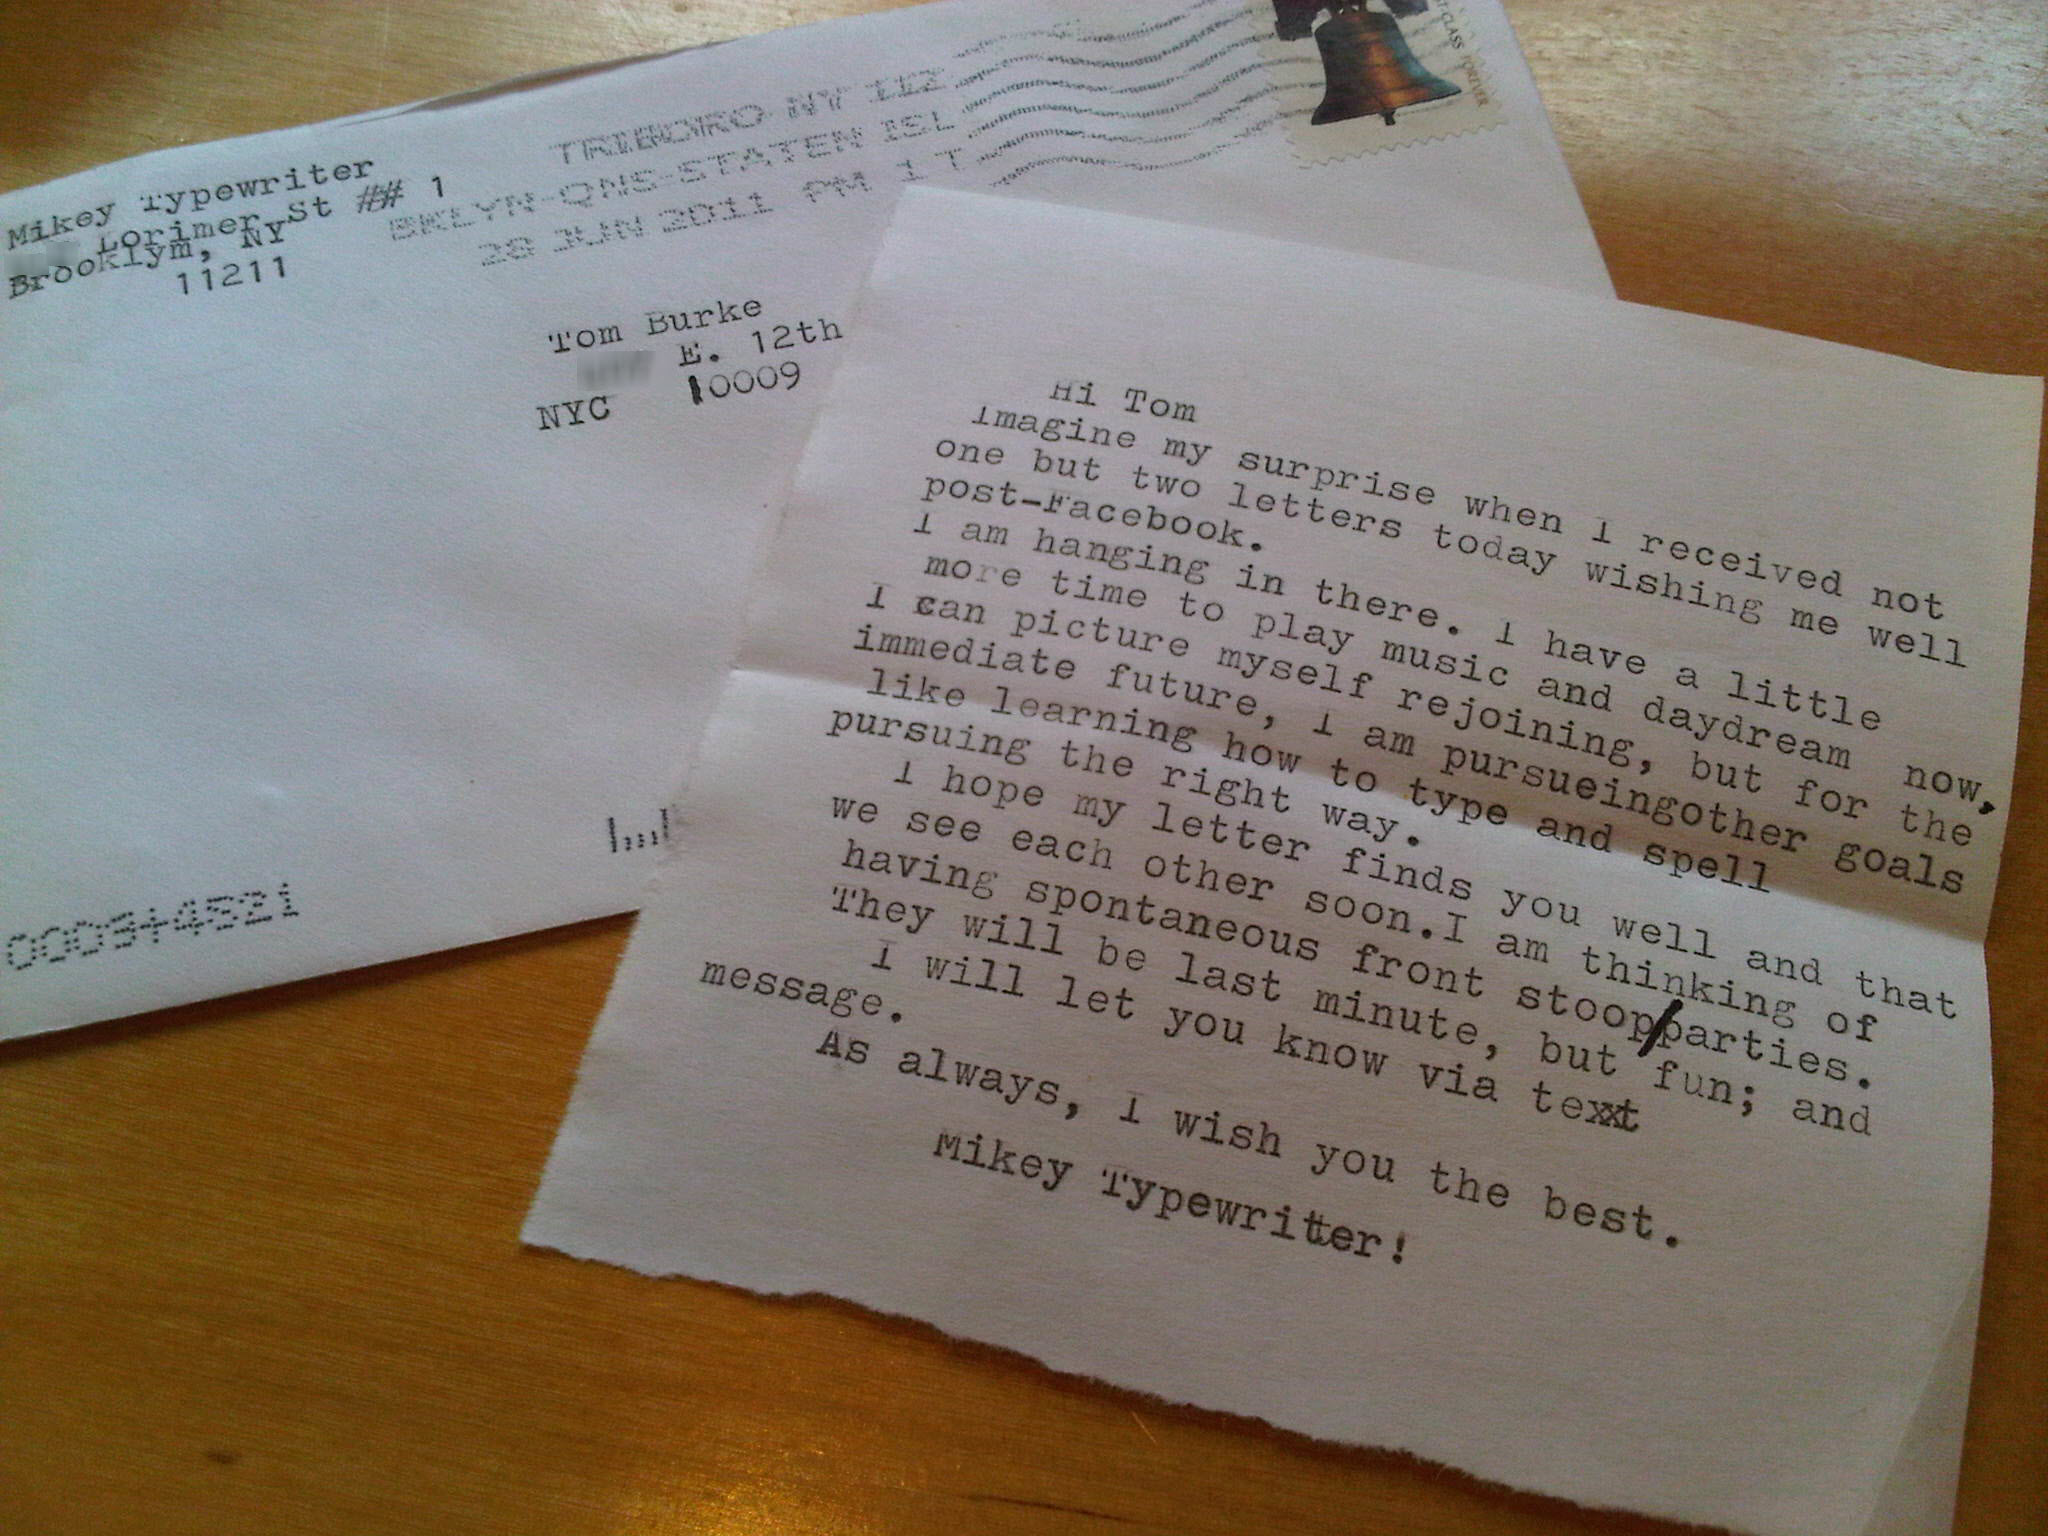 Mikey Typewriter
Lorimer St ## 1
Brooklym, NY
11211
TRIBORO NY 112
BKLYN-QNS-STATEN ISL
28 JUN 2011 PM 1 T
FOREVER
Tom Burke
E. 12th
NYC 10009
Hi Tom
Imagine my surprise when I received not
one but two letters today wishing me well
post-Facebook.
I am hanging in there. I have a little
more time to play music and daydream now,
I can picture myself rejoining, but for the
immediate future, I am pursueingother goals
like learning how to type and spell
pursuing the right way.
I hope my letter finds you well and that
we see each other soon.I am thinking of
having spontaneous front stoop/parties.
They will be last minute, but fun; and
I will let you know via texxt
message.
As always, I wish you the best.
Mikey Typewritter!